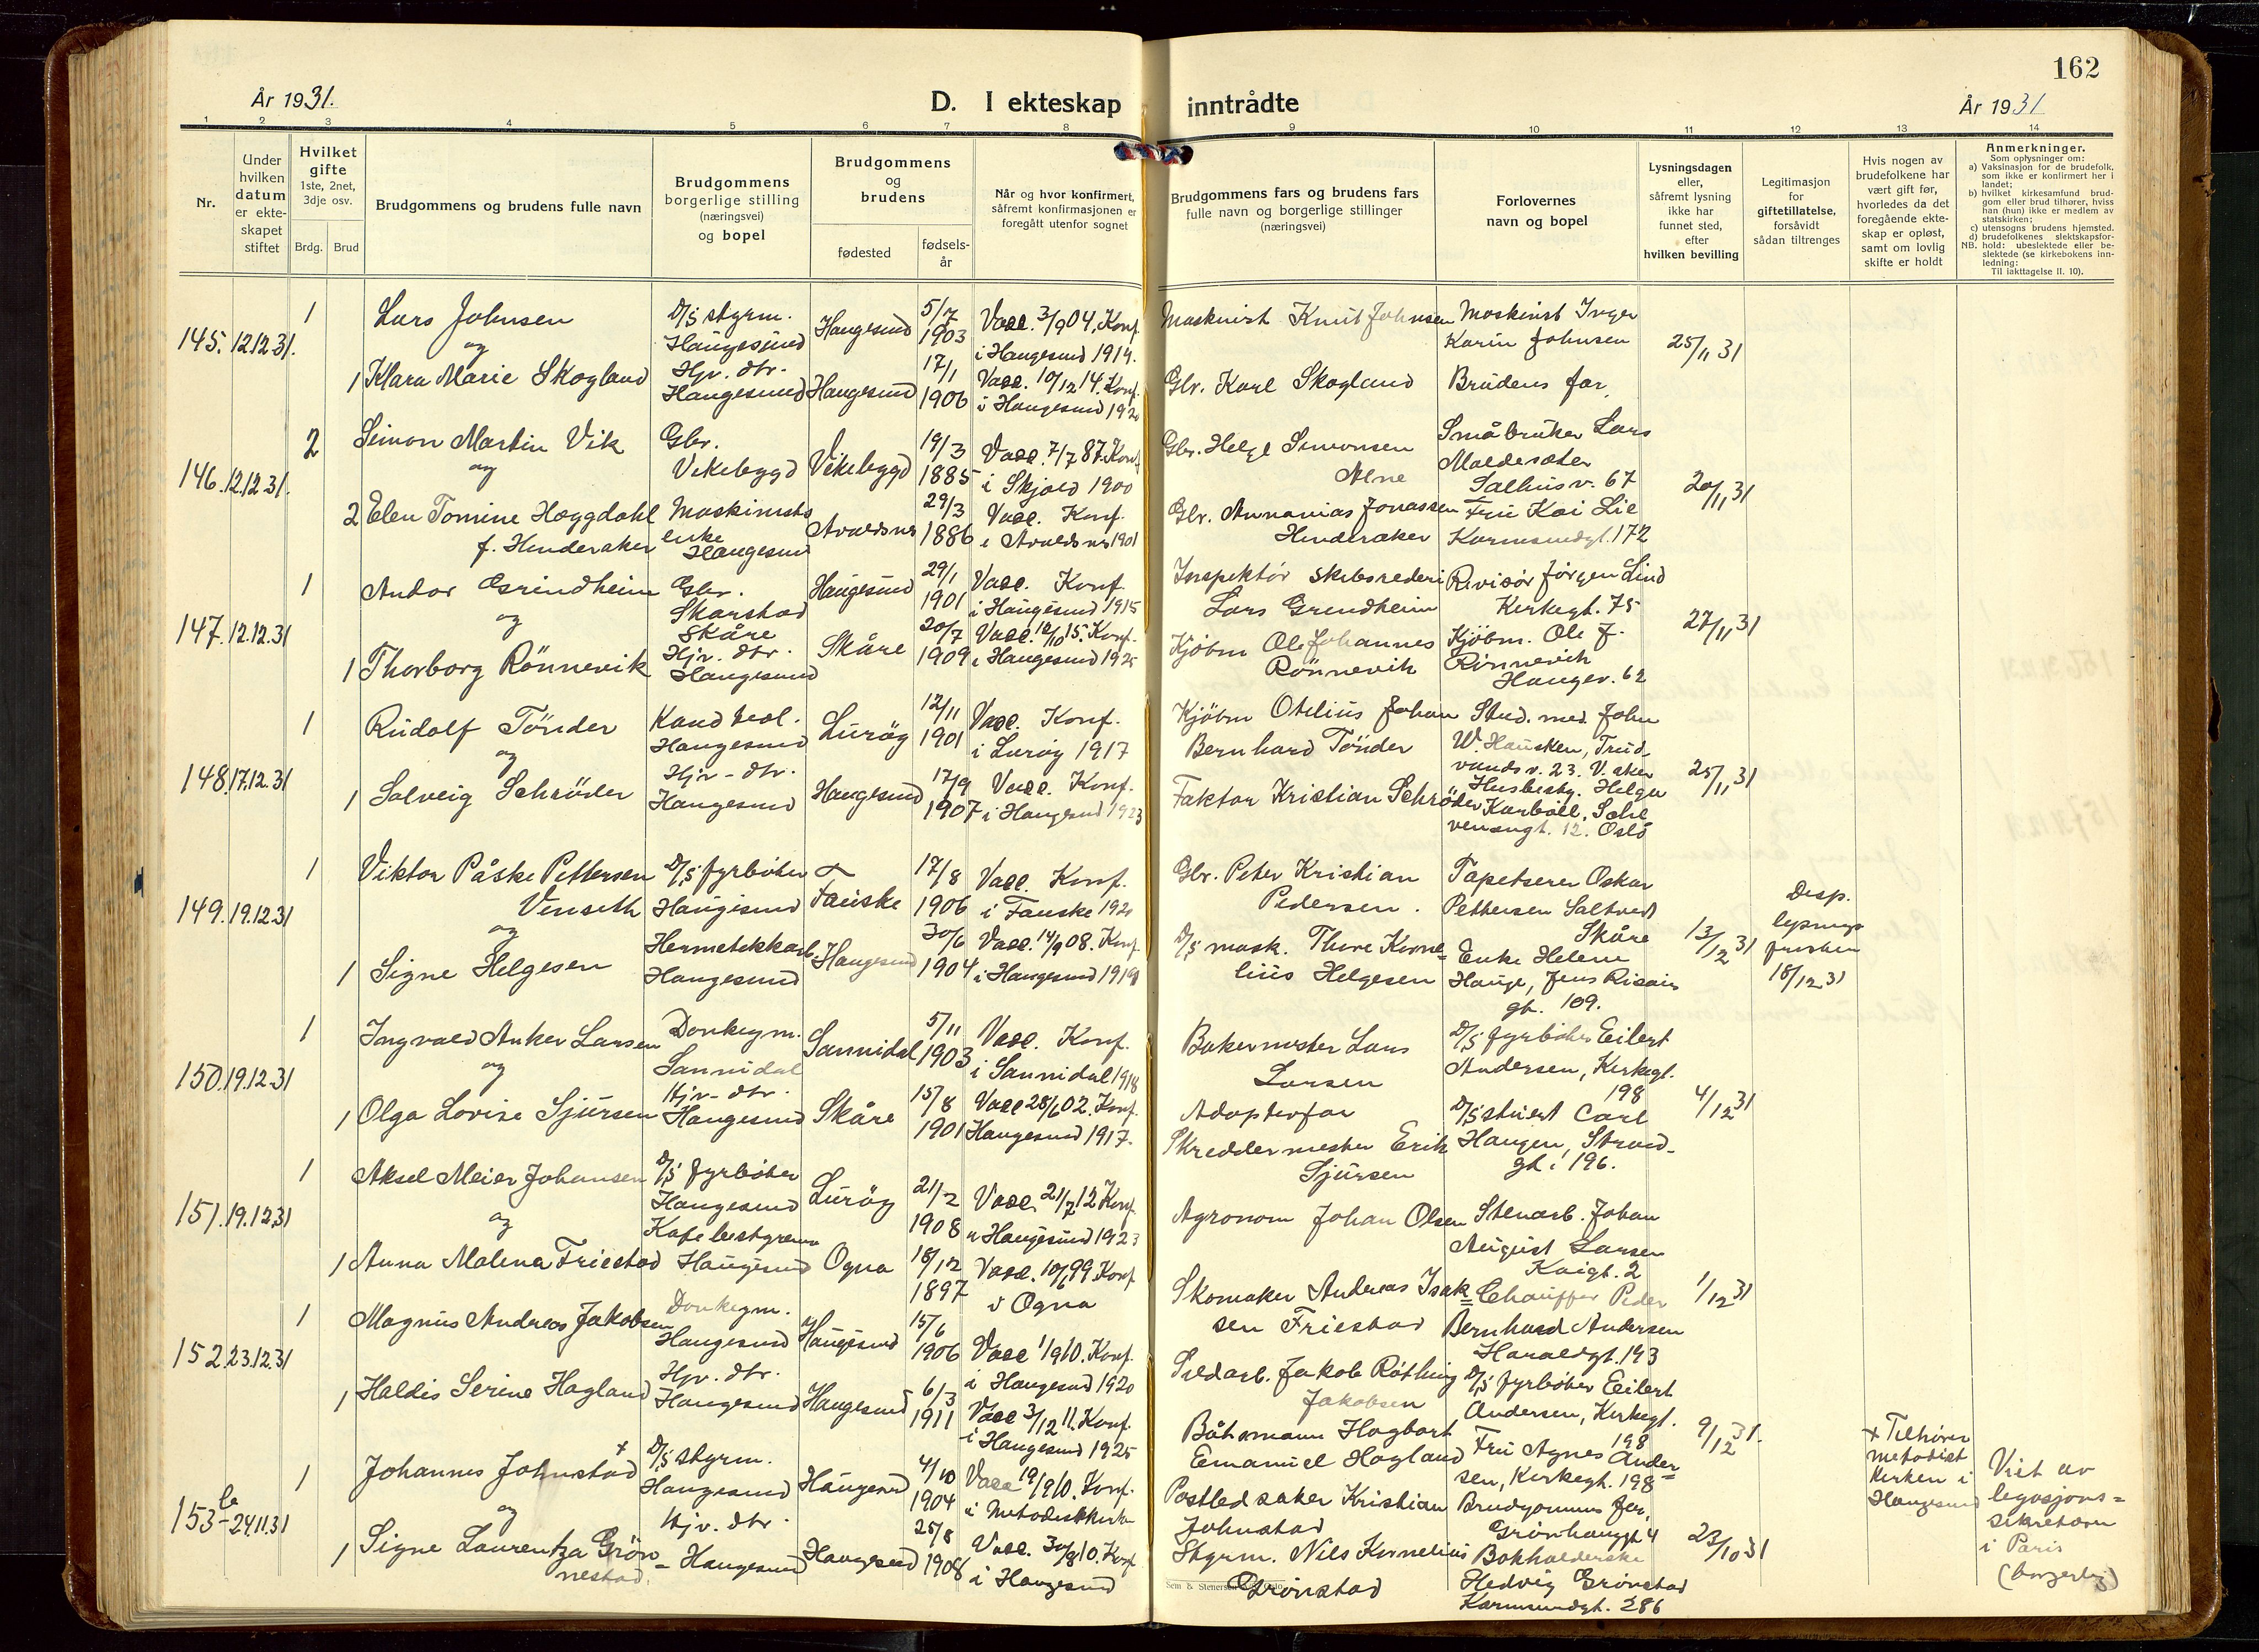 162
År 1931.
D. I ekteskap inntrådte
År 1931
1 2 3 4 5 6 7 8 9 10 11 12 13 14
Nr.
Under
hvilken
datum
er ekte-
skapet
stiftet
Hvilket
gifte
1ste, 2net,
3dje osv.
Brdg. Brud
Brudgommens og brudens fulle navn
Brudgommens
borgerlige stilling
(næringsvei)
og bopel
Brudgommens
og
brudens
fødested
fødsels-
år
Når og hvor konfirmert,
såfremt konfirmasjonen er
foregått utenfor sognet
Brudgommens fars og brudens fars
fulle navn og borgerlige stillinger
(næringsvei)
Forlovernes
navn og bopel
Lysningsdagen
eller,
såfremt lysning
ikke har
funnet sted,
efter
hvilken bevilling
Legitimasjon
for
giftetillatelse,
forsåvidt
sådan tiltrenges
Hvis nogen av
brudefolkene har
vært gift før,
hvorledes da det
foregående ekte-
skap er opløst,
samt om lovlig
skifte er holdt
Anmerkninger.
Som oplysninger om:
a) Vaksinasjon for de brudefolk,
som ikke er konfirmert her i
landet;
b) hvilket kirkesamfund brud-
gom eller brud tilhører, hviss
han (hun) ikke er medlem av
statskirken;
c) utensogns brudens hjemsted.
d) brudefolkenes slektskapsfor-
NB. hold: ubeslektede eller be-
slektede (se kirkebokens inn-
ledning:
Til iakttagelse II. 10).
145. 12.12.31.
1 Lars Johnsen
og
1 Klara Marie Skogland
D/S styrm.
Haugesund
Hjv. dtr.
Haugesund
Haugesund
Haugesund
5/7
1903
17/1
1906
Vacc. 3/9 04, Konf.
i Haugesund 1919.
Vacc. 10/12 14. Konf.
i Haugesund 1920
Maskinist Knut Johnsen
Gbr. Karl Skogland
Maskinist Inger
Karin Johnsen
Brudens far.
25/11 31
146. 12.12.31.
2 Simon Martin Vik
og
2 Elen Tomine Hæggdahl
f. Henderaker
Gbr.
Vikebygd
Maskinists
enke
Haugesund
Vikebygd
Avaldsnes
19/3
1885
29/3
1886
Vacc. 7/7 87. Konf
i Skjold 1900
Vacc. Konf.
i Avaldsnes 1901
Gbr. Helge Simonsen
Alne
Gbr. Annanias Jonassen
Henderaker
Småbruker Lars
Maldesæter
Salhusv. 67
Fru Kai Lie
Karmsundgt. 172
20/11 31
147. 12.12.31
1 Andor Grindheim
og
1 Thorborg Rönnevik
Gbr.
Skarstad
Skåre
Hjv. dtr.
Haugesund
Haugesund
Skåre
29/1
1901
20/7
1909
Vacc. Konf.
i Haugesund 1915
Vacc. 10/10 15. Konf.
i Haugesund 1925
Inspektör skibsrederi
Lars Grindheim
Kjöbm Ole Johannes
Rönnevik
Revisör Jörgen Lind
Kirkegt. 75
Kjöbm. Ole J.
Rönnevik
Haugev. 62
27/11 31
148. 17.12.31
1 Rudolf Tönder
og
1 Solveig Schröder
Kand teol.
Haugesund
Hjv - dtr.
Haugesund
Luröy
Haugesund
12/11
1901
17/9
1907
Vacc. Konf.
i Luröy 1917
Vacc. Konf.
i Haugesund 1923
Kjöbm Otelius Johan
Bernhard Tönder
Faktor Kristian Schröder
Stud. med. John
W. Hausken, Trud-
vandsv. 23. V. aker
Husbesty. Helga
Karböll, Schl
vensengt. 12. Oslo
25/11 31
149. 19.12.31
1 Viktor Påske Pettersen
Venseth
og
1 Signe Helgesen
D/S fyrböter
Haugesund
Hermetikkarb.
Haugesund
Fauske
Haugesund
17/8
1906
30/6
1904
Vacc. Konf.
i Fauske 1920
Vacc. 14/9 08. Konf
i Haugesund 1919
Gbr. Peter Kristian
Pedersen.
D/S mask. Thore Korne-
lius Helgesen
Tapetserer Oskar
Pettersen Saltveit
Skåre
Enke Helene
Hauge, Jens Risöis
gt. 109.
13/12 31
Disp.
lysnings
fristen
18/12 31
150. 19.12.31
1 Ingvald Anker Larsen
og
1 Olga Lovise Sjursen
Donkeym.
Sannidal
Hjv - dtr.
Haugesund
Sannidal
Skåre
5/11
1903
15/8
1901
Vacc. Konf.
i Sannidal 1918
Vacc 28/6 02. Konf.
Haugesund 1917.
Bakermester Lars
Larsen
Adoptivfar
Skreddermester Erik
Sjursen
D/S fyrböter Eilert
Andersen, Kirkegt.
198
D/S stuert Carl
Haugen, Strand-
gt. 196.
4/12 31
151. 19.12.31
1 Aksel Meier Johansen
og
1 Anna Malena Friestad
D/S fyrböter
Haugesund
Kafebestyrerinne
Haugesund
Luröy
Ogna
21/2
1908
18/12
1897
Vacc. 21/7 12 Konf.
i Haugesund 1923
Vacc. 10/1 99 Konf
i Ogna
Agronom Johan Olsen
Skomaker Andreas Isak=
sen Friestad
Stenarb. Johan
August Larsen
Kaigt. 2
Chauffør Peder
Bernhard Andersen
Haraldgt. 193
1/12 31
152. 23.12.31
1 Magnus Andreas Jakobsen
1 Haldis Serine Hagland
Donkeym.
Haugesund
Hjv. dtr.
Haugesund
Haugesund
Haugesund
15/6
1906
6/3
1911
Vacc 1910. Konf.
i Haugesund 1920
Vacc 3/12 11. Konf.
i Haugesund 1925
Sildarb. Jakob Röthing
Jakobsen
Båtsmann Hagbart
Emanuel Hagland
D/S fyrböter Eilert
Andersen, Kirkegt.
198
Fru Agnes Ander=
sen, Kirkegt. 198
9/12 31.
153 b - 24.11.31
1 Johannes Johnstad +
og
1 Signe Laurentza Grön
nestad.
D/S styrm.
Haugesund
Hjv. dtr.
Haugesund
Haugesund
Haugesund
4/10
1904
25/8
1908
Vacc 19/9 10. Konf.
i Metodistkirke
Vacc. 30/8 10. Konf
i Haugesund
Postledsaker Kristian
Johnstad
Styrm. Nils Kornelius
Grönstad
Brudgommens far,
Grönhauggt 4
Bokholderske
Hedvig Grönstad
Karmsundgt. 286
23/10 31
+ Tilhörer
metodist
kirken i
Haugesund
Viet av
legasjons=
sekretæren
i Paris
(borgerlig)
Sem & Stenersen